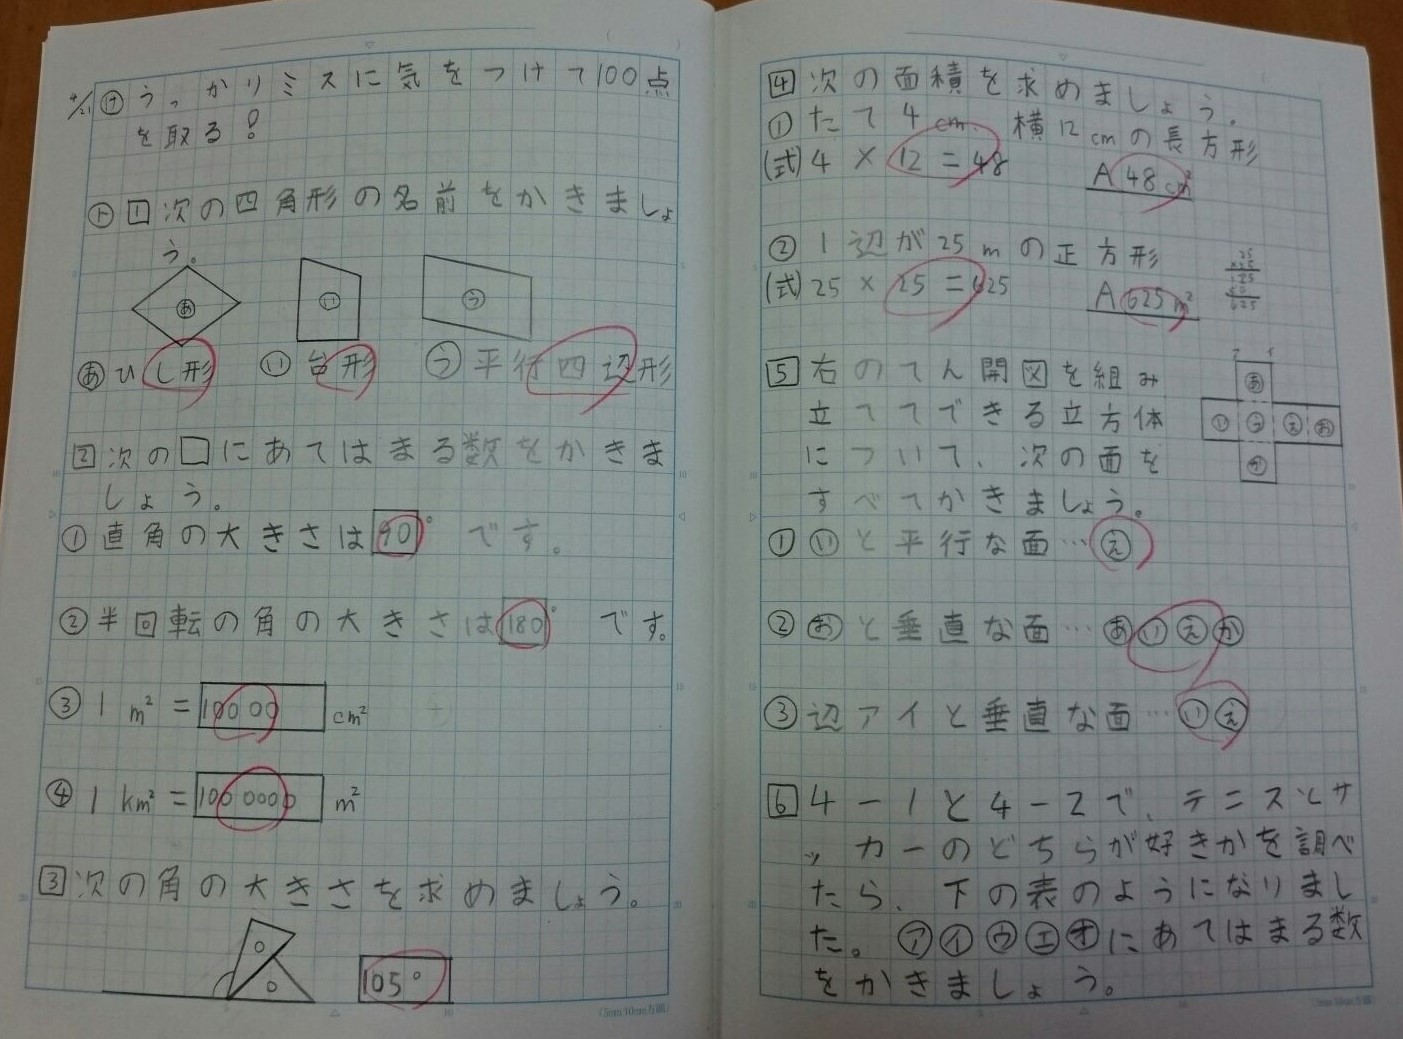 4/21 ㋘ うっかりミスに気をつけて100点
を取る!
㋣ 1 次の四角形の名前をかきましょ
う。
あ い う
あ ひし形 い 台形 う 平行四辺形
2 次の□にあてはまる数をかきま
しょう。
① 直角の大きさは90°です。
② 半回転の角の大きさは180°です。
③ 1m²=10000cm²
④ 1km²=1000000m²
3 次の角の大きさを求めましょう。
105°
(5mm 10mm方眼)
4 次の面積を求めましょう。
① たて4cm、横12cmの長方形
(式)4×12=48
A 48cm²
② 1辺が25mの正方形
(式)25×25=625
A 625m²
25
×25
125
50
625
5 右のてん開図を組み
立ててできる立方体
について、次の面を
すべてかきましょう。
ア イ
あ
い う え お
か
① いと平行な面…え
② おと垂直な面…あいえか
③ 辺アイと垂直な面…いえ
6 4-1と4-2で、テニスとサ
ッカーのどちらが好きかを調べ
たら、下の表のようになりまし
た。㋐㋑㋒㋓㋔にあてはまる数
をかきましょう。
(5mm 10mm方眼)